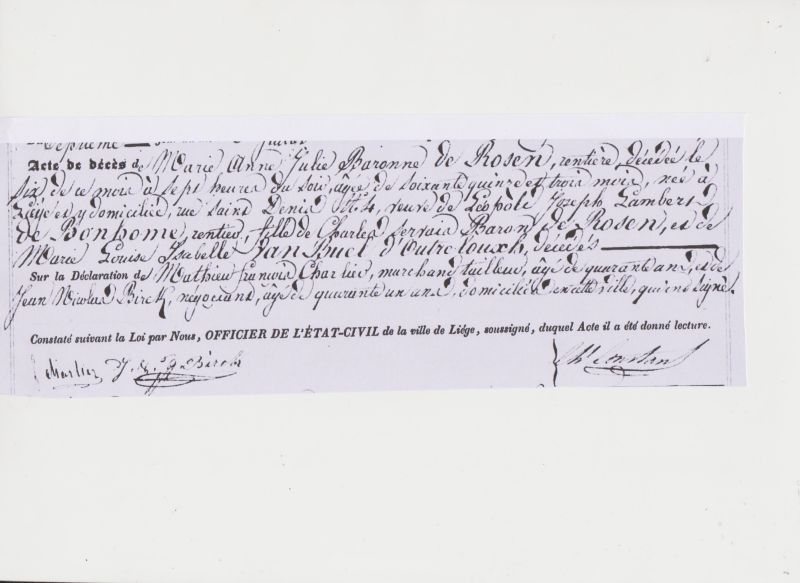 Septième
Acte de décès de Marie Anne Julie Baronne de Rosen, rentière, décédée le
six de ce mois à sept heures du soir, âgée de soixante quinze et trois mois, née à
Liége et y domiciliée, rue Saint Denis N. 4, veuve de Léopold Joseph Lambert
de Bonhome, rentier, fille de Charles Servais Baron de Rosen, et de
Marie Louise Isabelle Van Buel d'Outre louxh, décédés
Sur la Déclaration de Mathieu françois Charlier, marchand tailleur, âgé de quarante ans, et de
Jean Nicolas Birck, negociant, âgé de quarante un ans, domiciliés en cette ville, qui ont signé.
Constaté suivant la Loi par Nous, OFFICIER DE L'ÉTAT-CIVIL de la ville de Liége, soussigné, duquel Acte il a été donné lecture.
J. N. Birck